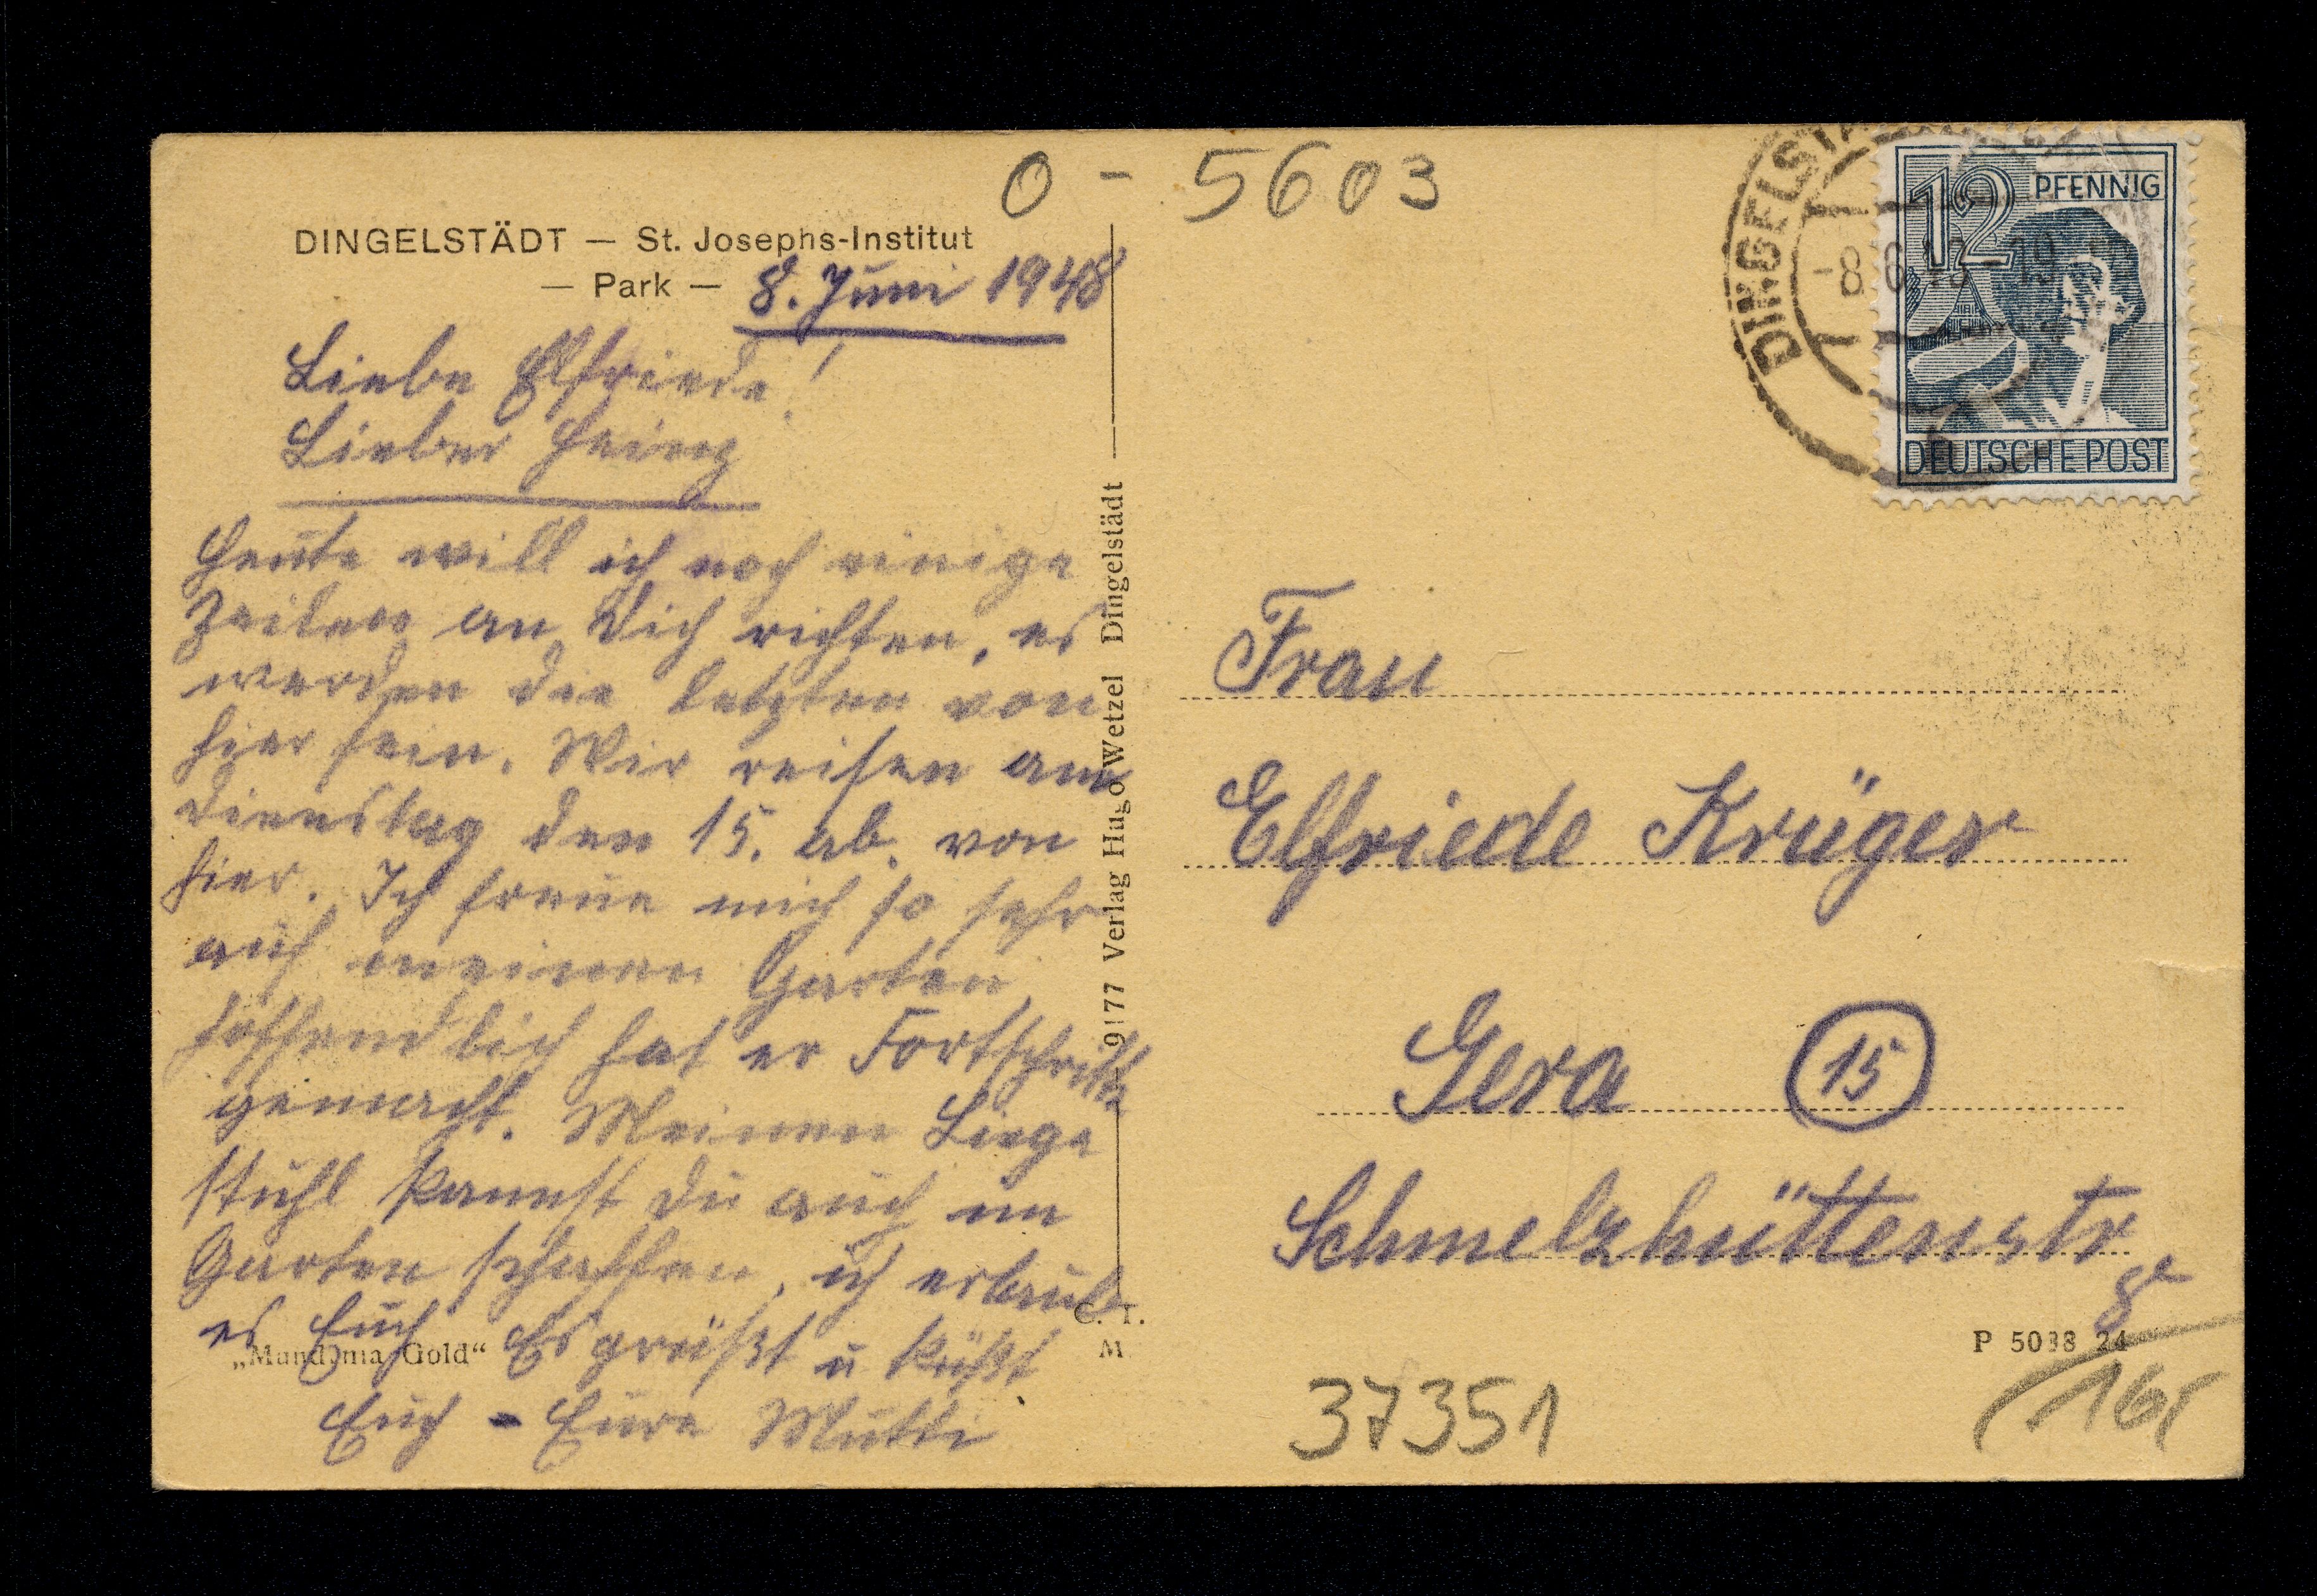 0 - 5603
DINGELSTÄDT — St. Josephs-Institut
— Park —
8. Juni 1948
Liebe Elfriede!
Lieber Heinz!
Heute will ich noch einige
Zeilen an Dich richten, es
werden die letzten von
hier sein. Wir reisen am
Dienstag den 15. ab. von
hier. Ich freue mich so sehr
auf meinen Garten,
hoffendlich hat er Fortschritte
gemacht. Meinen Liege
stuhl kannst Du auch im
Garten schaffen, ich erlaube
es Euch Es grüßt u küßt
Euch - Eure Mutti
„Mundania Gold“
9177 Verlag Hugo Wetzel Dingelstädt
C. T.
M
DINGELSTÄ
-8.6.48 -19
12 PFENNIG
DEUTSCHE POST
Frau
Elfriede Krüger
Gera 15
Schmelzhüttenstr
8
P 5088 24
37351